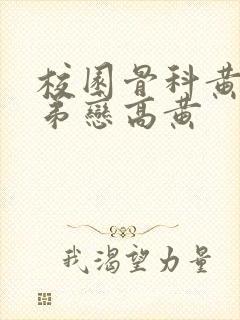 校园骨科黄
弟戀高黄
我渴望力量